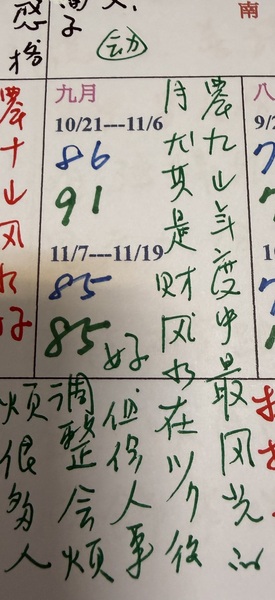 南
动
子
感
九月
10/21---11/6
86
91
11/7---11/19
85
85 好
八
9/2
農九山年度中最风光的
月尤其是财风水在以後
但你人事
调整会烦
烦很多人
農十山风水好